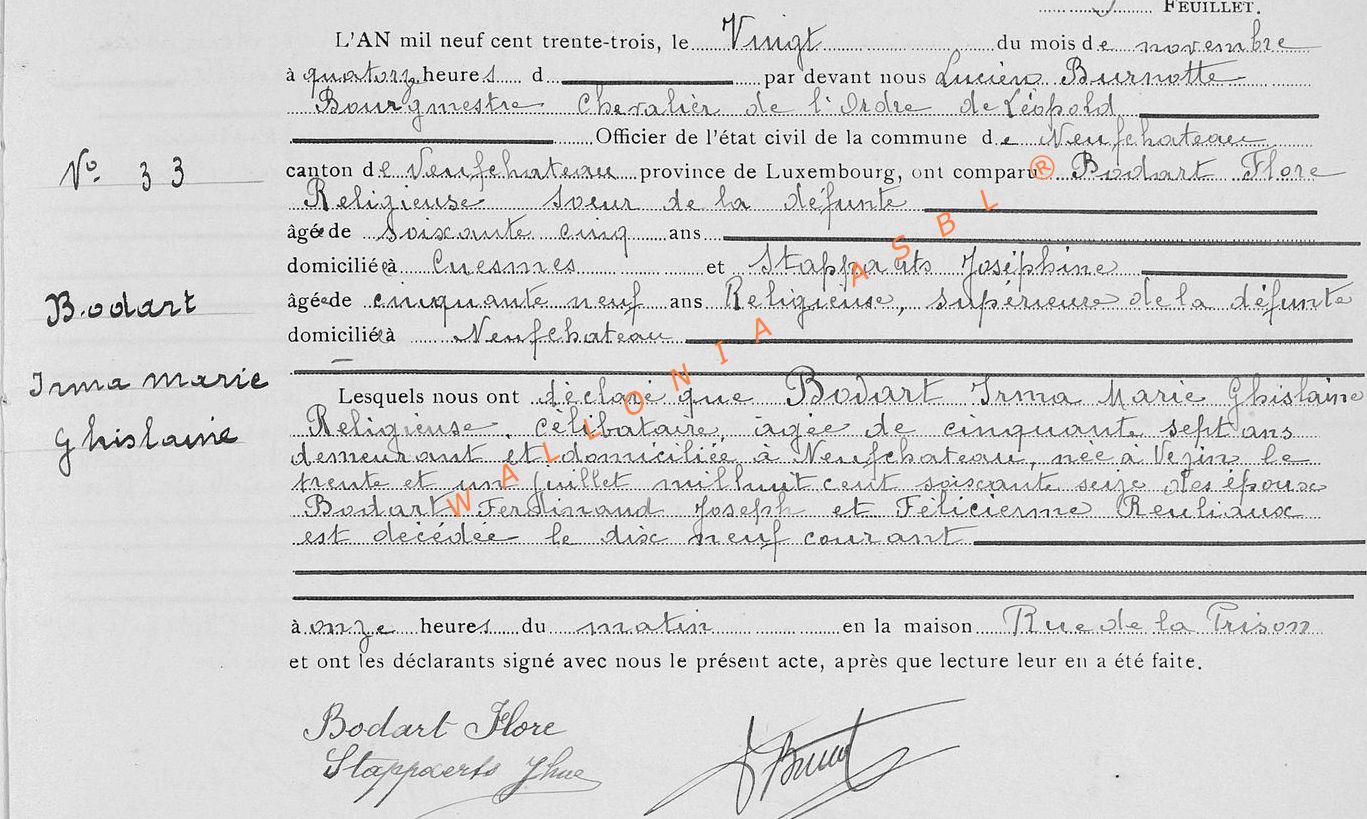 FEUILLET.
L'AN mil neuf cent trente-trois, le Vingt du mois de novembre
à quatorz heures d par devant nous Lucien Burnotte
Bourgmestre Chevalier de l'Ordre de Léopold
Officier de l'état civil de la commune de Neufchateau
N° 33
canton de Neufchateau province de Luxembourg, ont comparu Bodart Flore
Religieuse Soeur de la défunte
âgée de Soixante cinq ans
domiciliée à Cuesmes et Stappaerts Joséphine
Bodart
âgée de cinquante neuf ans Religieuse, supérieure de la défunte
domiciliée à Neufchateau
Irma Marie
Lesquels nous ont déclaré que Bodart Irma Marie Ghislaine
Ghislaine
Religieuse, célibataire, âgée de cinquante sept ans
demeurant et domiciliée à Neufchateau, née à Vezin le
trente et un Juillet mil huit cent soixante seize des époux
Bodart Ferdinand Joseph et Félicienne Reuliaux
est décédée le dix neuf courant
à onze heures du matin en la maison Rue de la Prison
et ont les déclarants signé avec nous le présent acte, après que lecture leur en a été faite.
Bodart Flore
Stappaerts Jhne
WALLONIA ASBL ®